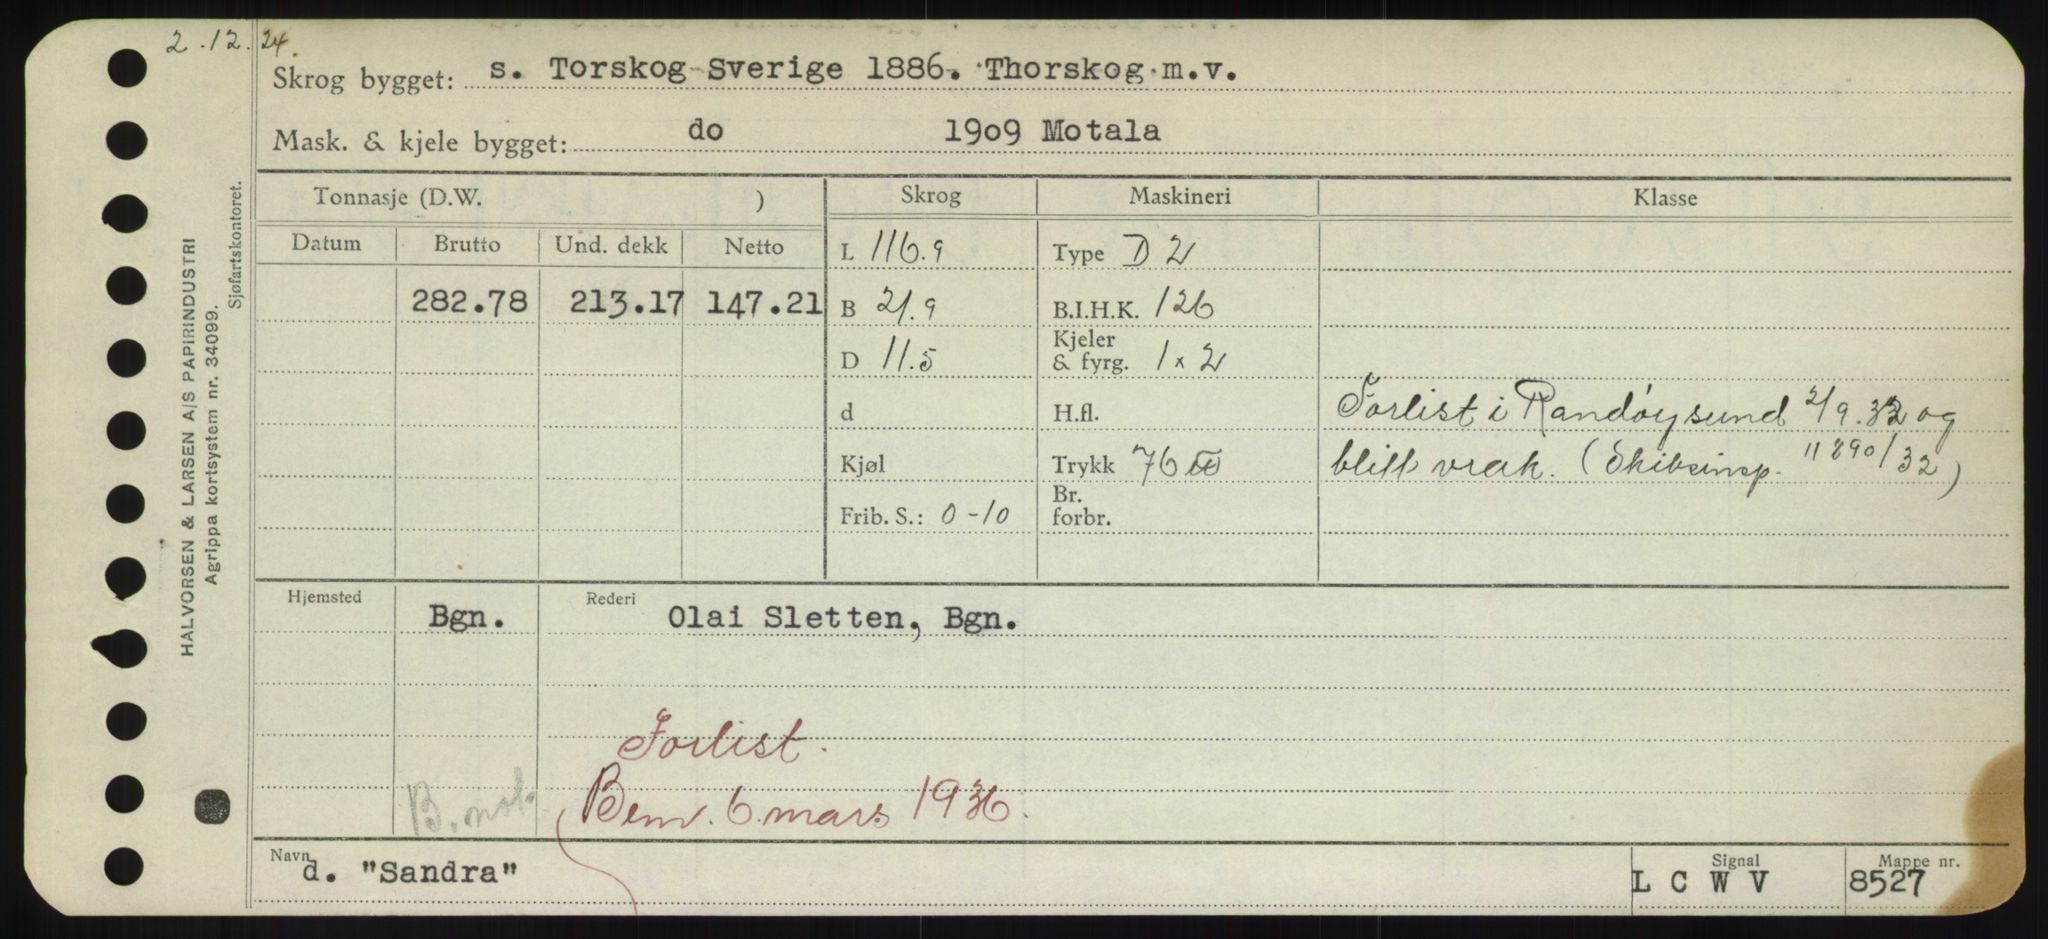 2.12.24.
Skrog bygget: s. Torskog Sverige 1886. Thorskog m.v.
Mask. & kjele bygget: do 1909 Motala
Tonnasje (D.W. ) Skrog Maskineri Klasse
Datum Brutto Und. dekk Netto L 116.9 Type D 2
282.78 213.17 147.21 B 21.9 B.I.H.K. 126
D 11.5 Kjeler & fyrg. 1 x 2
d H.fl. Forlist i Randöysund 2/9.32 og
Kjøl Trykk 76 blitt vrak. (Skibsinsp. 11890/32)
Frib. S.: 0-10 Br. forbr.
Hjemsted Bgn. Rederi Olai Sletten, Bgn.
Forlist.
B. not. Bem. 6. mars 1936.
Navn d. "Sandra" Signal L C W V Mappe nr. 8527
HALVORSEN & LARSEN A/S PAPIRINDUSTRI
Agrippa kortsystem nr. 34099.
Sjøfartskontoret.